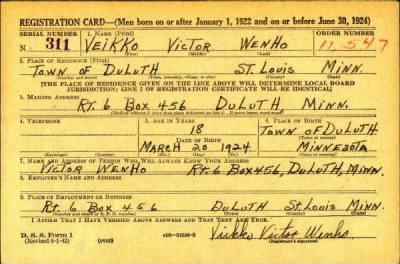 REGISTRATION CARD—(Men born on or after January 1, 1922 and on or before June 30, 1924)
SERIAL NUMBER 1. NAME (Print) ORDER NUMBER
N 311 VEIKKO VICTOR WENHO 11,547
(First) (Middle) (Last)
2. PLACE OF RESIDENCE (Print)
TOWN OF DULUTH ST. LOUIS MINN.
(Number and street) (Town, township, village, or city) (County) (State)
[THE PLACE OF RESIDENCE GIVEN ON THE LINE ABOVE WILL DETERMINE LOCAL BOARD
JURISDICTION; LINE 2 OF REGISTRATION CERTIFICATE WILL BE IDENTICAL]
3. MAILING ADDRESS
RT. 6 BOX 456 DULUTH MINN.
[Mailing address if other than place indicated on line 2. If same insert word same]
4. TELEPHONE 5. AGE IN YEARS 6. PLACE OF BIRTH
18 TOWN OF DULUTH
DATE OF BIRTH
MARCH 20 1924 MINNESOTA
7. NAME AND ADDRESS OF PERSON WHO WILL ALWAYS KNOW YOUR ADDRESS
VICTOR WENHO RT. 6 BOX 456, DULUTH, MINN.
8. EMPLOYER'S NAME AND ADDRESS
9. PLACE OF EMPLOYMENT OR BUSINESS
RT. 6 BOX 456 DULUTH ST. LOUIS MINN.
(Number and street or R. F. D. number) (Town) (County) (State)
I AFFIRM THAT I HAVE VERIFIED ABOVE ANSWERS AND THAT THEY ARE TRUE.
D. S. S. Form 1 Veikko Victor Wenho
(Revised 6-1-42) (over) (Registrant's signature)